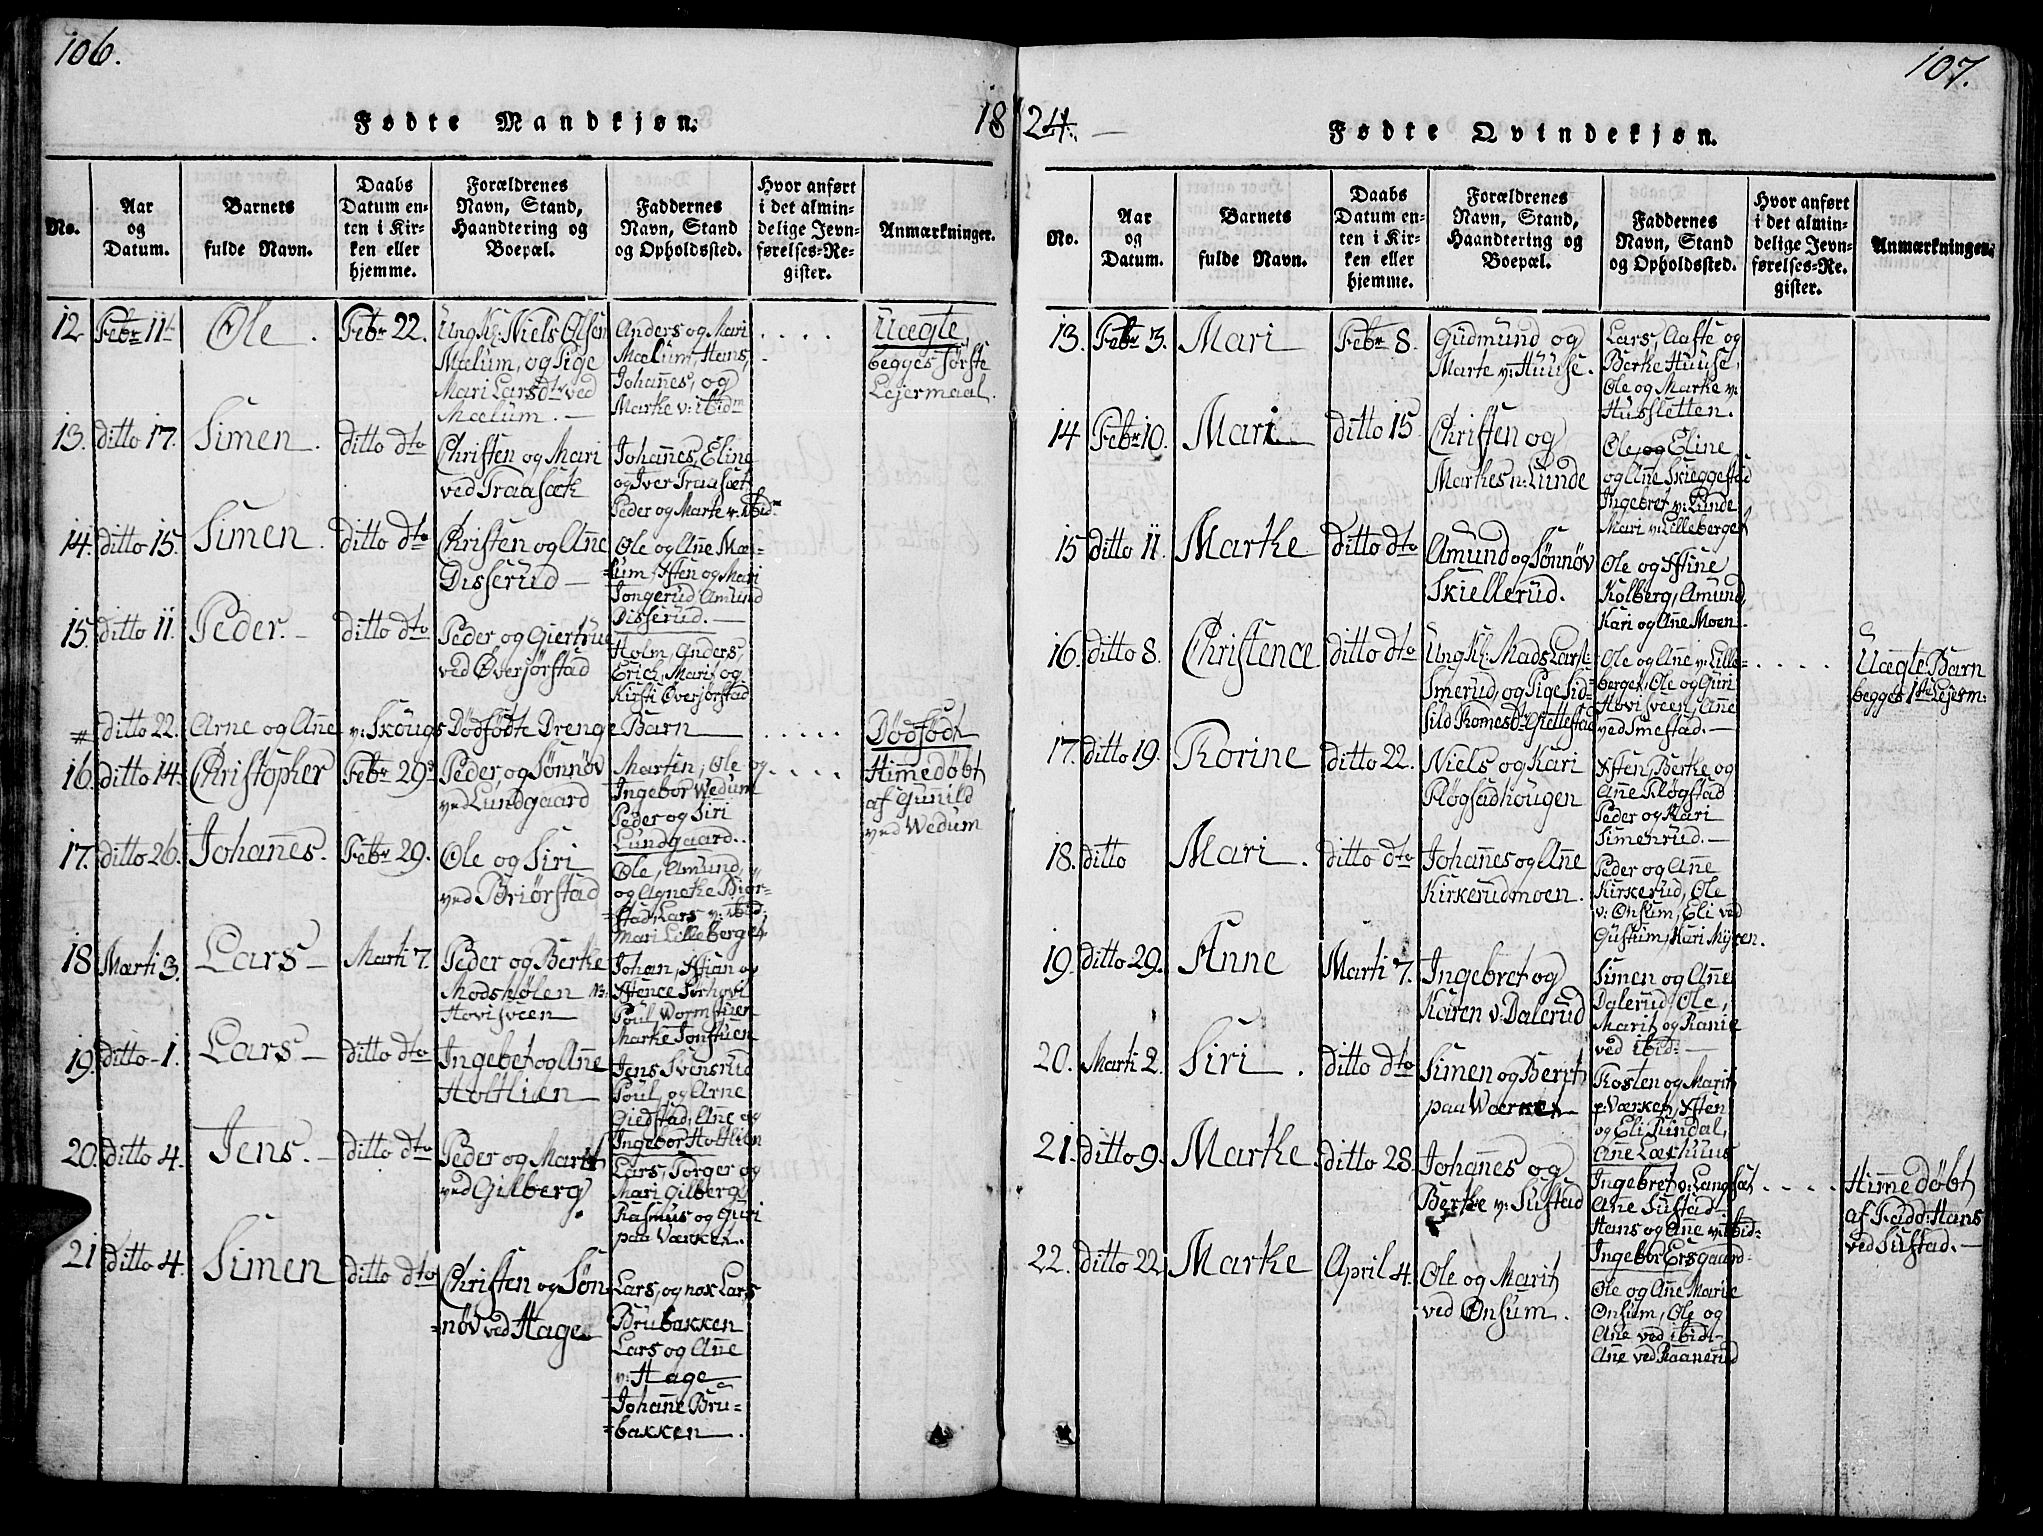 106.
Fødte Mandkjøn.
18
No.
Aar
og
Datum.
Barnets
fulde Navn.
Daabs
Datum en-
ten i Kir-
ken eller
hjemme.
Forældrenes
Navn, Stand,
Haandtering og
Boepæl.
Faddernes
Navn, Stand
og Opholdssted.
Hvor anført
i det almin-
delige Jevn-
førelses-Re-
gister.
Anmærkninger.
12 Febr 11t Ole. Febr 22.
Ungk: Niels Olsen
Mælum, og Pige
Mari Larsdtr ved
Mælum.
Anders og Mari
Mælum, Hans,
Johanes, og
Marke v: ibidm
Uægte,
begges første
Lejermaal.
13. ditto 17. Simen. ditto dto
Christen og Mari
ved Traasæth
Johanes, Eline
og Iver Traasæth
Peder og Marte v: ibidm
14. ditto 15. Simen. ditto dto
Christen og Ane
Disserud
Ole og Ane Mæ-
lum, Xsten og Mari
Jongerud, Amund
Disserud.
15. ditto 11. Peder. ditto dto
Peder og Giertrue
ved Øverjørstad
Holm, Anders,
Erich, Mari, og
Kirsti Øverjørstad
# ditto 22. Arne og Ane v: Skougs Dödfödte Drenge Barn
Dödfödt
16. ditto 14. Christopher Febr 29.
Peder og Sønnøv
ved Lundgaard
Martin, Ole og
Ingebor Wedum
Peder og Siri
Lundgaard.
Himedøbt
af Gunild
ved Wedum
17. ditto 26. Johanes. Febr 29.
Ole og Siri
ved Briørstad
Ole, Amund,
og Agnethe Biør-
stad, Lars v: ibid,
Mari Lilleberget
18 Marti 3. Lars Marti 7.
Peder og Berthe
Modshølen
Hovisveen
Johan, Xstian og
Xstence Sørhovi
Poul Wormstuen
Marthe Jonstuen
19. ditto 1. Lars ditto dto
Ingebet og Ane
Holtlien
Jens Svensrud
Poul, og Arne
Giedstad, Ane og
Ingebor Holtlien
20. ditto 4. Jens. ditto dto
Peder og Marit
ved Gilberg
Lars, Torger og
Mari Gilberg
Rasmus og Guri
paa Værket.
21 ditto 4. Simen ditto dto
Christen og Søn-
nøv ved Hage
Lars, og nok Lars
Brubakken
Lars og Ane
v: Hage
Johane Bru-
bakken.
107.
24.
Fødte Qvindekjøn.
No.
Aar
og
Datum.
Barnets
fulde Navn.
Daabs
Datum en-
ten i Kir-
ken eller
hjemme.
Forældrenes
Navn, Stand,
Haandtering og
Boepæl.
Faddernes
Navn, Stand
og Opholdssted.
Hvor anført
i det almin-
delige Jevn-
førelses-Re.
gister.
Anmærkninger.
13. Febr 3. Mari Febr 8.
Gudmund og
Marte v: Huuse.
Lars, Aaste og
Berthe Huuse,
Ole og Marthe v:
Hussletten.
14 Febr 10. Mari ditto 15
Christen og
Marthe v: Lunde
Ole og Eline
og Ane Skieggestad
Ingebret v: Lunde
Mari v: Lilleberget
15 ditto 11. Marthe ditto dto
Amund og Sønnøv
Skiellerud.
Ole og Xstine
Kolberg, Amund,
Kari og Ane Moen
16. ditto 8. Christence ditto dto
Ungk: Mads Lars:
Smerud, og Pige Sid-
sild Tomesdtr Giettestad
Ole og Ane v: Lille-
berget, Ole og Guri
Hovisveen, Ane
ved Smestad.
Uægte Barn
begges 1ste Lejerm:
17. ditto 19. Korine ditto 22.
Niels og Kari
Kløgstadhougen
Xsten, Berthe og
Ane Kløgstad
Peder og Kari
Simenrud.
18. ditto Mari. ditto dto
Johanes og Ane
Kirkerudmoen.
Peder og Ane
Kirkerud, Ole
v: Onsum, Eli ved
Gustum, Kari Myren.
19. ditto 29. Anne Marti 7.
Ingebret og
Karen v: Dalerud
Simen og Ane
Dalerud, Ole,
Marit og Ranie
ved ibid:
20. Marti 2. Siri. ditto dto
Simen og Berit
paa Wærket
Torsten og Marit
p: Værket, Xsten
og Eli Rindal,
Ane Læshuus
21. ditto 9. Marthe ditto 28.
Johanes og
Berthe v: Sustad
Ingebret v: Langsæt
Ane Sustad
Hans og Ane v: ibid-
Ingebor Ersgaard
Himedøbt
af Fadd: Hans
ved Sustad.
22. ditto 22 Marthe April 4.
Ole og Marit
ved Onsum.
Ole og Ane Marie
Onsum, Ole og
Ane ved ibidt
Ane ved Raanerud